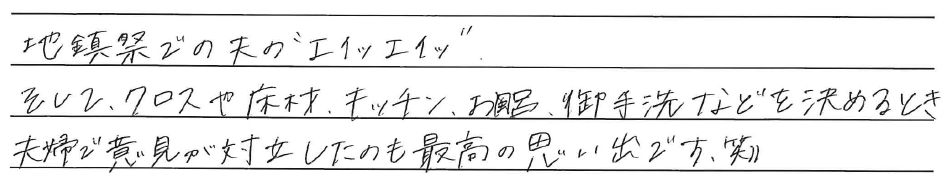 地鎮祭での夫の“エイッエイッ”.
そして、クロスや床材、キッチン、お風呂、御手洗などを決めるとき
夫婦で意見が対立したのも最高の思い出です、笑))